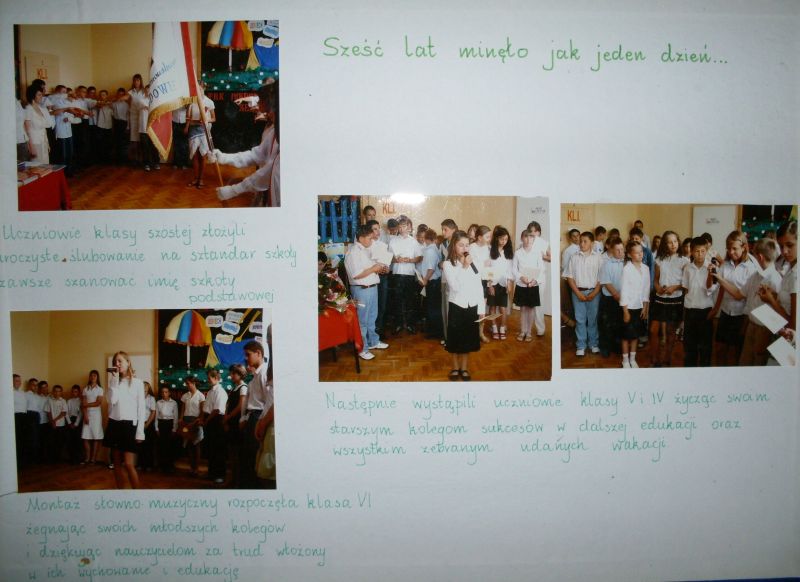 Sześć lat minęło jak jeden dzień...
KL I
OWE
Uczniowie klasy szóstej złożyli
uroczyste ślubowanie na sztandar szkoły
zawsze szanować imię szkoły
podstawowej
KL I
KL I
Następnie wystąpili uczniowie klasy V i IV życząc swoim
starszym kolegom sukcesów w dalszej edukacji oraz
wszystkim zebranym udanych wakacji
Montaż słowno muzyczny rozpoczęła klasa VI
żegnając swoich młodszych kolegów
i dziękując nauczycielom za trud włożony
w ich wychowanie i edukację